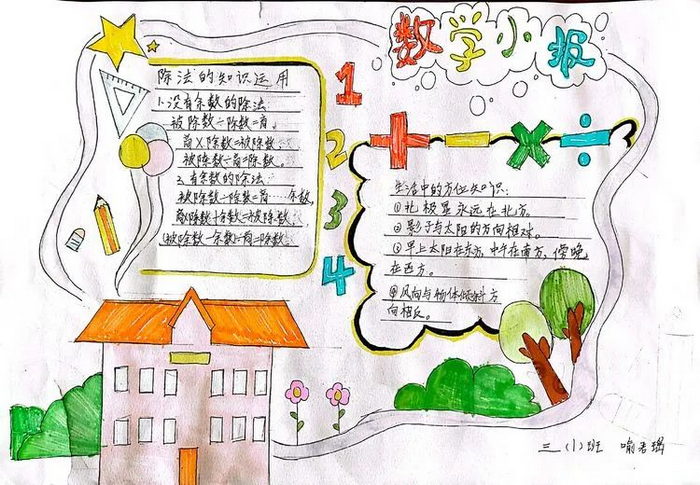 数学小报
除法的知识运用
1.没有余数的除法
被除数÷除数=商。
商×除数=被除数
被除数÷商=除数。
2.有余数的除法
被除数÷除数=商……余数,
商×除数+余数=被除数
(被除数-余数)÷商=除数
1
2
3
4
+ - × ÷
生活中的方位知识:
①北极星永远在北方。
②影子与太阳的方向相对。
③早上太阳在东方,中午在南方,傍晚
在西方。
④风向与物体倾斜方
向相反。
三(1)班 喻若瑶